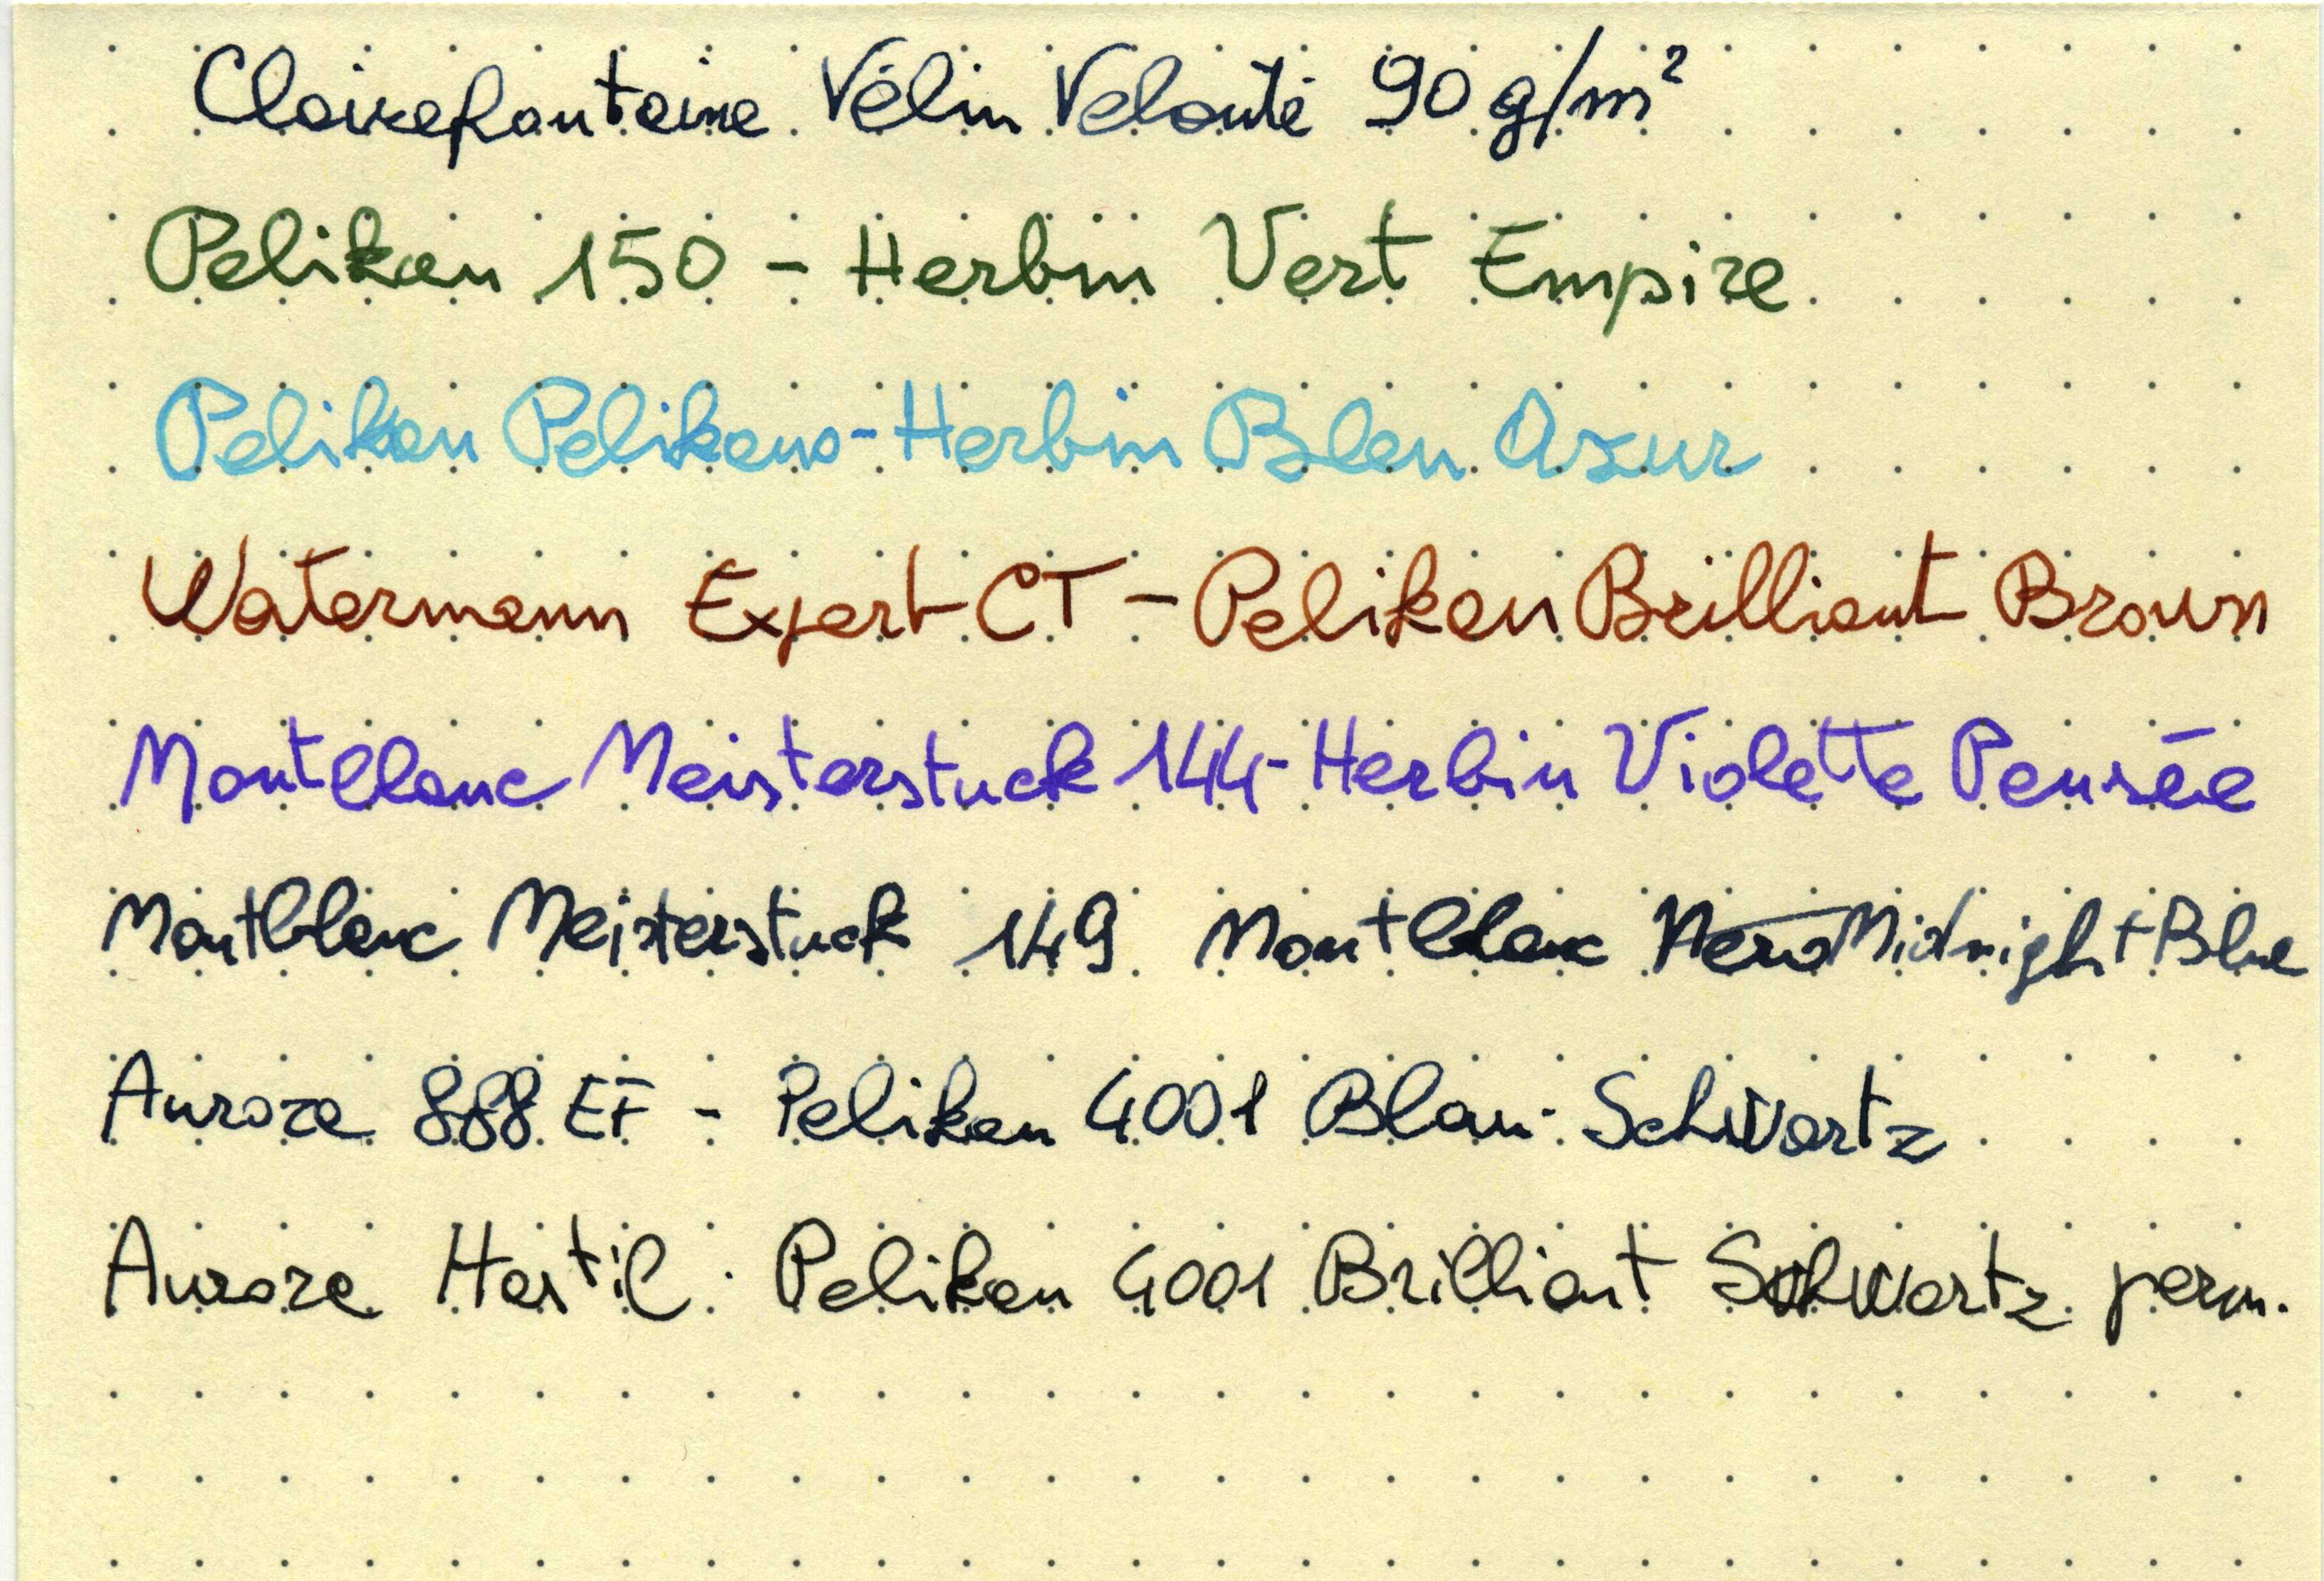 Clairefontaine Vélin Velouté 90 g/m²
Pelikan 150 - Herbin Vert Empire
Pelikan Pelikano - Herbin Bleu Azur
Watermann Expert CT - Pelikan Brilliant Brown
Montblanc Meisterstuck 144 - Herbin Violette Pensée
Montblanc Meisterstuck 149 Montblanc Nero Midnight Blue
Aurora 888 EF - Pelikan 4001 Blau-Schwartz
Aurora Hastil . Pelikan 4001 Brilliant Schwartz perm.